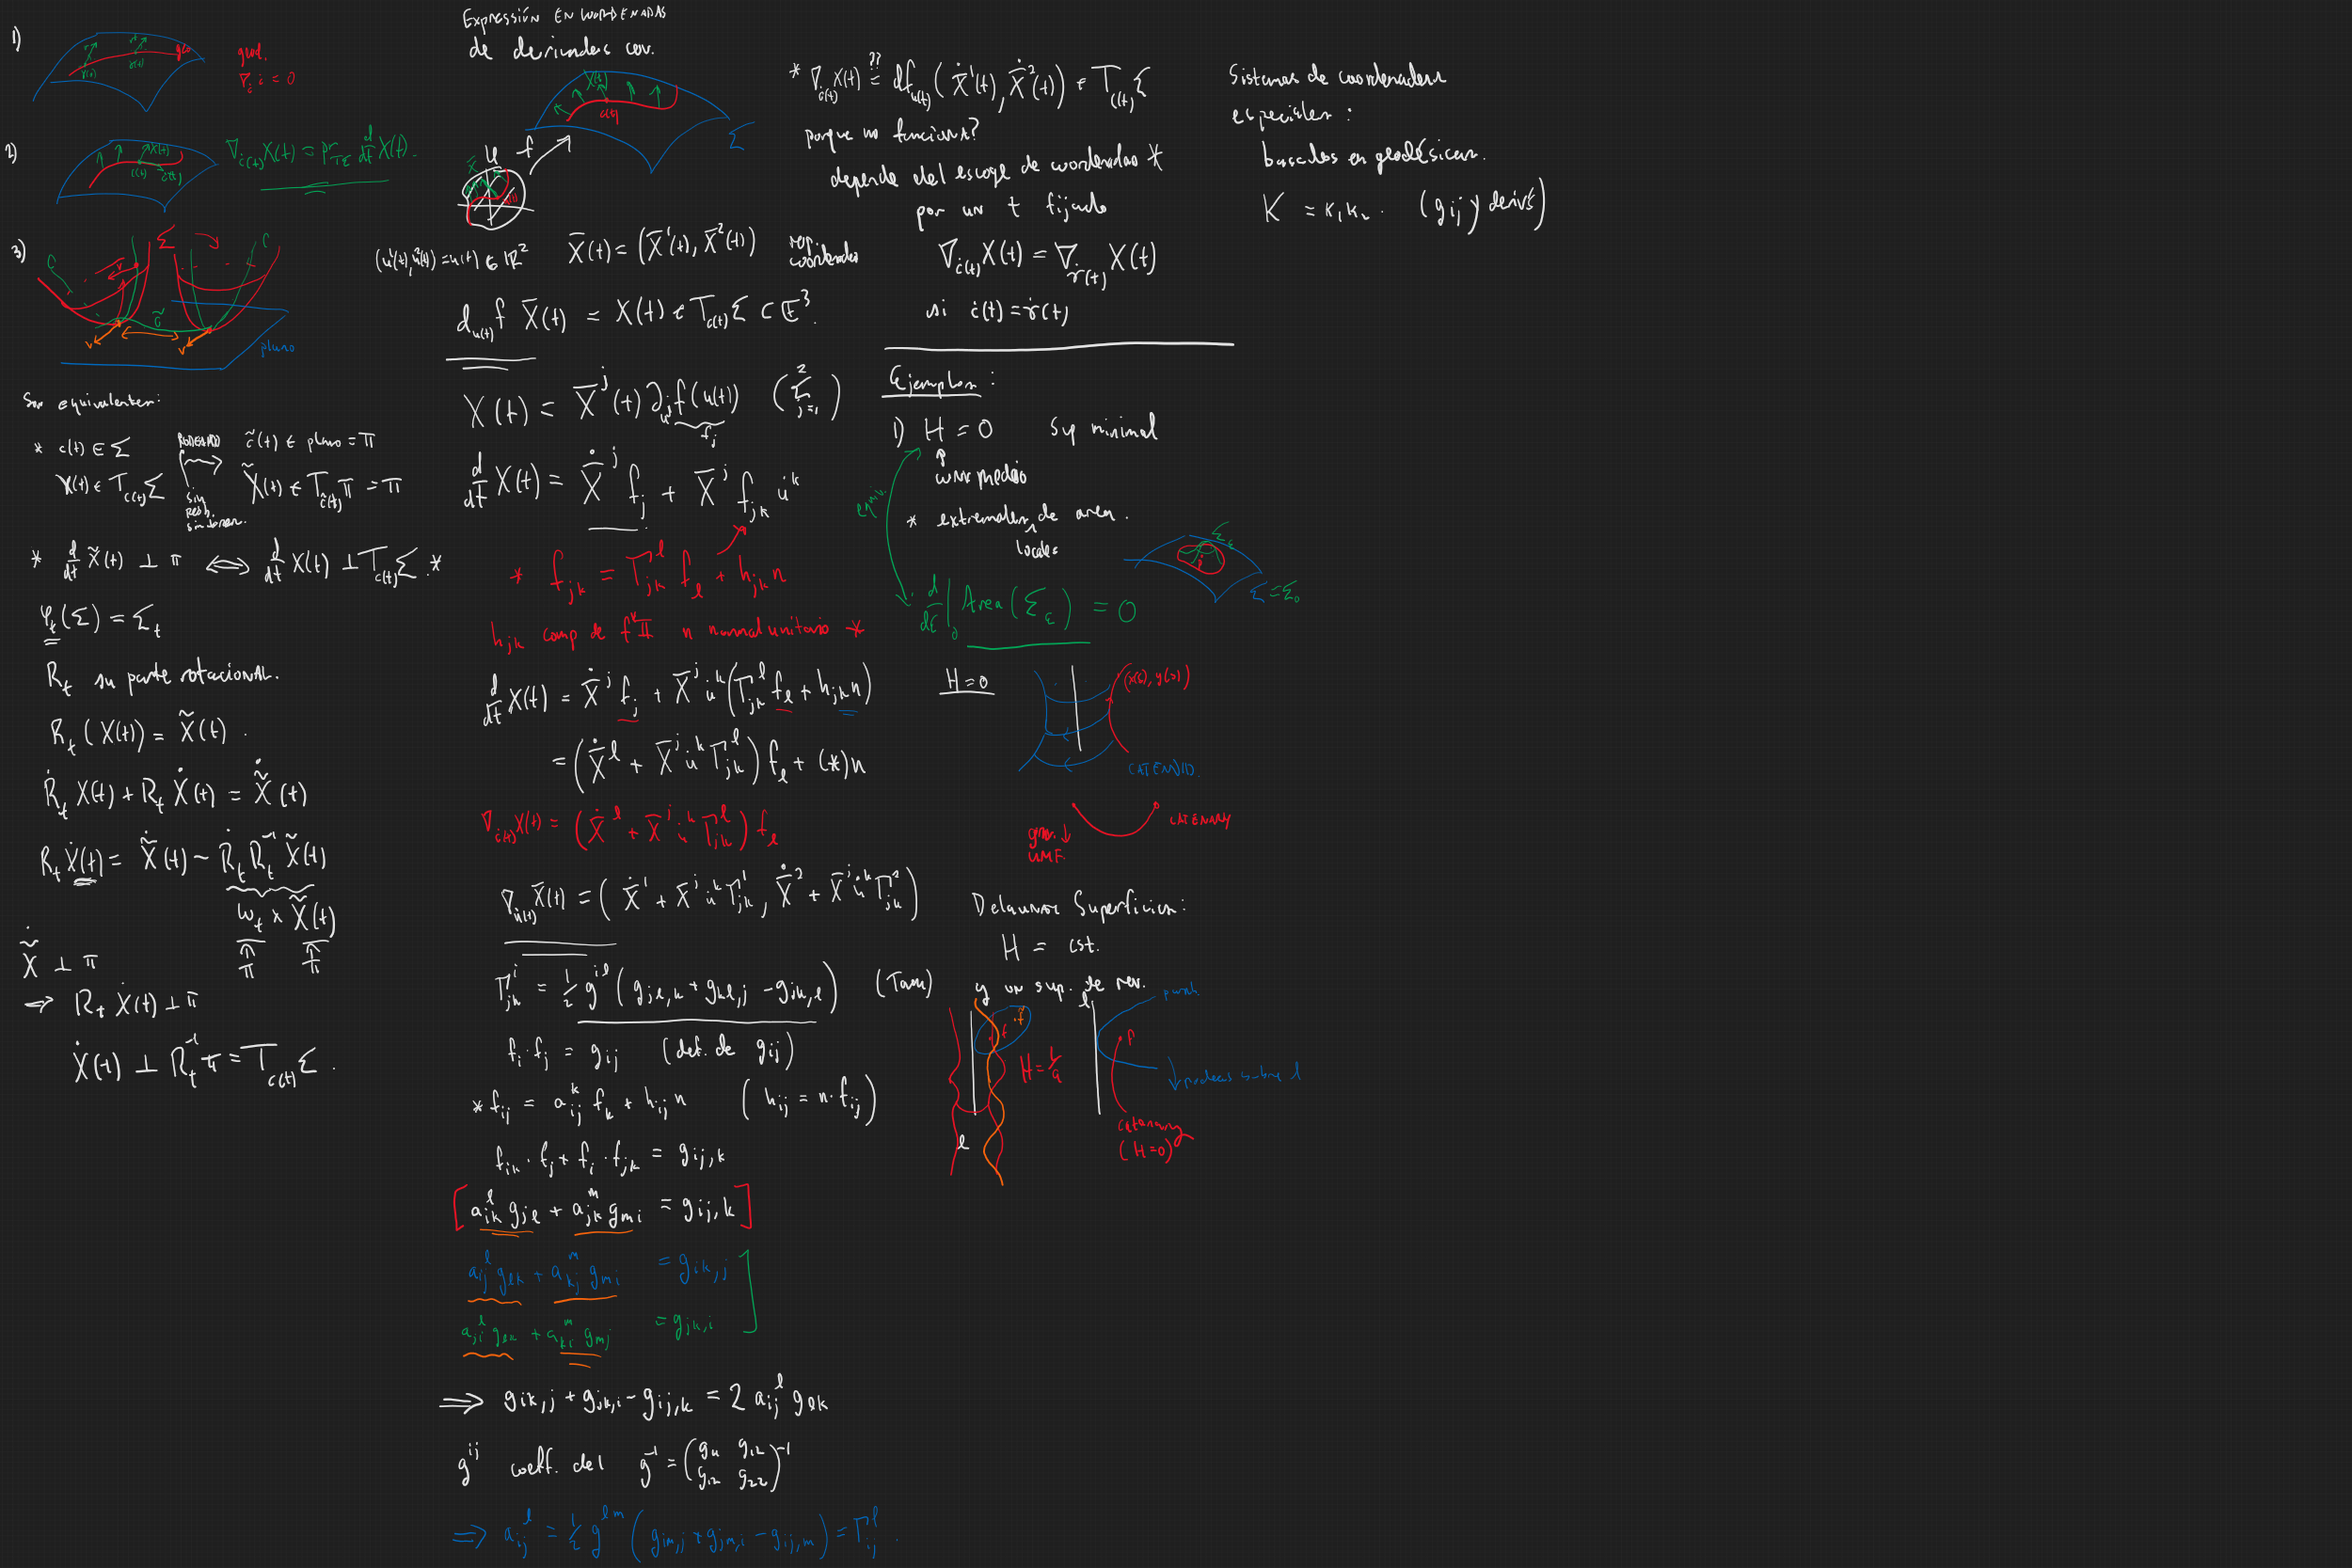 1)
geod.
∇_ċ ċ = 0
2)
X(t)
c(t) ċ(t)
∇_{ċ(t)} X(t) = pr_{TΣ} d/dt X(t).
3)
Σ
c̃
v v
plano
Son equivalentes:
* c(t) ∈ Σ RODEANDO c̃(t) ∈ plano = π
X(t) ∈ T_{c(t)}Σ sin resb. sin torcer. X̃(t) ∈ T_{c̃(t)}π = π
* d/dt X̃(t) ⊥ π ⟺ d/dt X(t) ⊥ T_{c(t)}Σ . *
φ_t(Σ) = Σ_t
R_t su parte rotacional.
R_t(X(t)) = X̃(t) .
Ṙ_t X(t) + R_t Ẋ(t) = X̃̇(t)
R_t Ẋ(t) = X̃̇(t) − Ṙ_t R_t^{-1} X̃(t)
ω_t × X̃(t)
π π
X̃̇ ⊥ π
⟺ R_t Ẋ(t) ⊥ π
Ẋ(t) ⊥ R_t^{-1} π = T_{c(t)}Σ .
Expressión EN COORDENADAS
de derivadas cov.
X(t)
c(t)
Σ
U f
(u¹(t), u²(t)) = u(t) ∈ ℝ² X̄(t) = (X̄¹(t), X̄²(t)) rep coordenadas
d_{u(t)}f X̄(t) = X(t) ∈ T_{c(t)}Σ ⊂ 𝔼³.
X(t) = X̄^j(t) ∂_{u^j} f(u(t)) (Σ_{j=1}^2)
f_j
d/dt X(t) = X̄̇^j f_j + X̄^j f_{jk} u̇^k
* f_{jk} = Γ^l_{jk} f_l + h_{jk} n
h_{jk} comp de f*II n normal unitario *
d/dt X(t) = X̄̇^j f_j + X̄^j u̇^k (Γ^l_{jk} f_l + h_{jk} n)
= (X̄̇^l + X̄^j u̇^k Γ^l_{jk}) f_l + (*) n
∇_{ċ(t)} X(t) = (X̄̇^l + X̄^j u̇^k Γ^l_{jk}) f_l
∇_{u̇(t)} X̄(t) = (X̄̇¹ + X̄^j u̇^k Γ¹_{jk}, X̄̇² + X̄^j u̇^k Γ²_{jk})
Γ^i_{jk} = ½ g^{il} (g_{jl,k} + g_{kl,j} − g_{jk,l}) (Tarea)
f_i · f_j = g_{ij} (def. de g_{ij})
* f_{ij} = a^k_{ij} f_k + h_{ij} n (h_{ij} = n · f_{ij})
f_{ik} · f_j + f_i · f_{jk} = g_{ij,k}
[a^l_{ik} g_{jl} + a^m_{jk} g_{mi} = g_{ij,k}]
a^l_{ij} g_{lk} + a^m_{kj} g_{mi} = g_{ik,j}
a^l_{ji} g_{lk} + a^m_{ki} g_{mj} = g_{jk,i}
⟹ g_{ik,j} + g_{jk,i} − g_{ij,k} = 2 a^l_{ij} g_{lk}
g^{ij} coeff. del g^{-1} = (g_{11} g_{12} g_{12} g_{22})^{-1}
⟹ a^l_{ij} = ½ g^{lm} (g_{im,j} + g_{jm,i} − g_{ij,m}) = Γ^l_{ij} .
* ∇_{ċ(t)} X(t) =?? df_{u(t)} (X̄̇¹(t), X̄̇²(t)) ∈ T_{c(t)}Σ
porque no funciona?
depende del escoge de coordenadas *
por un t fijado
∇_{ċ(t)} X(t) = ∇_{γ̇(t)} X(t)
si ċ(t) = γ̇(t)
Ejemplos :
1) H = 0 Sup minimal
curv media
* extremales de area .
locales
equiv.
d/dε|_0 Area(Σ_ε) = 0
Σ_ε
Σ = Σ_0
H = 0
(x(s), y(s))
CATENOID.
CATENARY
grav. ↓
UNIF.
Delaunay Superficies:
H = cst.
y un sup. de rev.
H = 1/a
l
l
parab.
f
↓ rodeas sobre l
catenary
(H = 0)
Sistemas de coordenadas
especiales :
basados en geodésicas.
K = κ₁κ₂ . (g_{ij} y derivs)